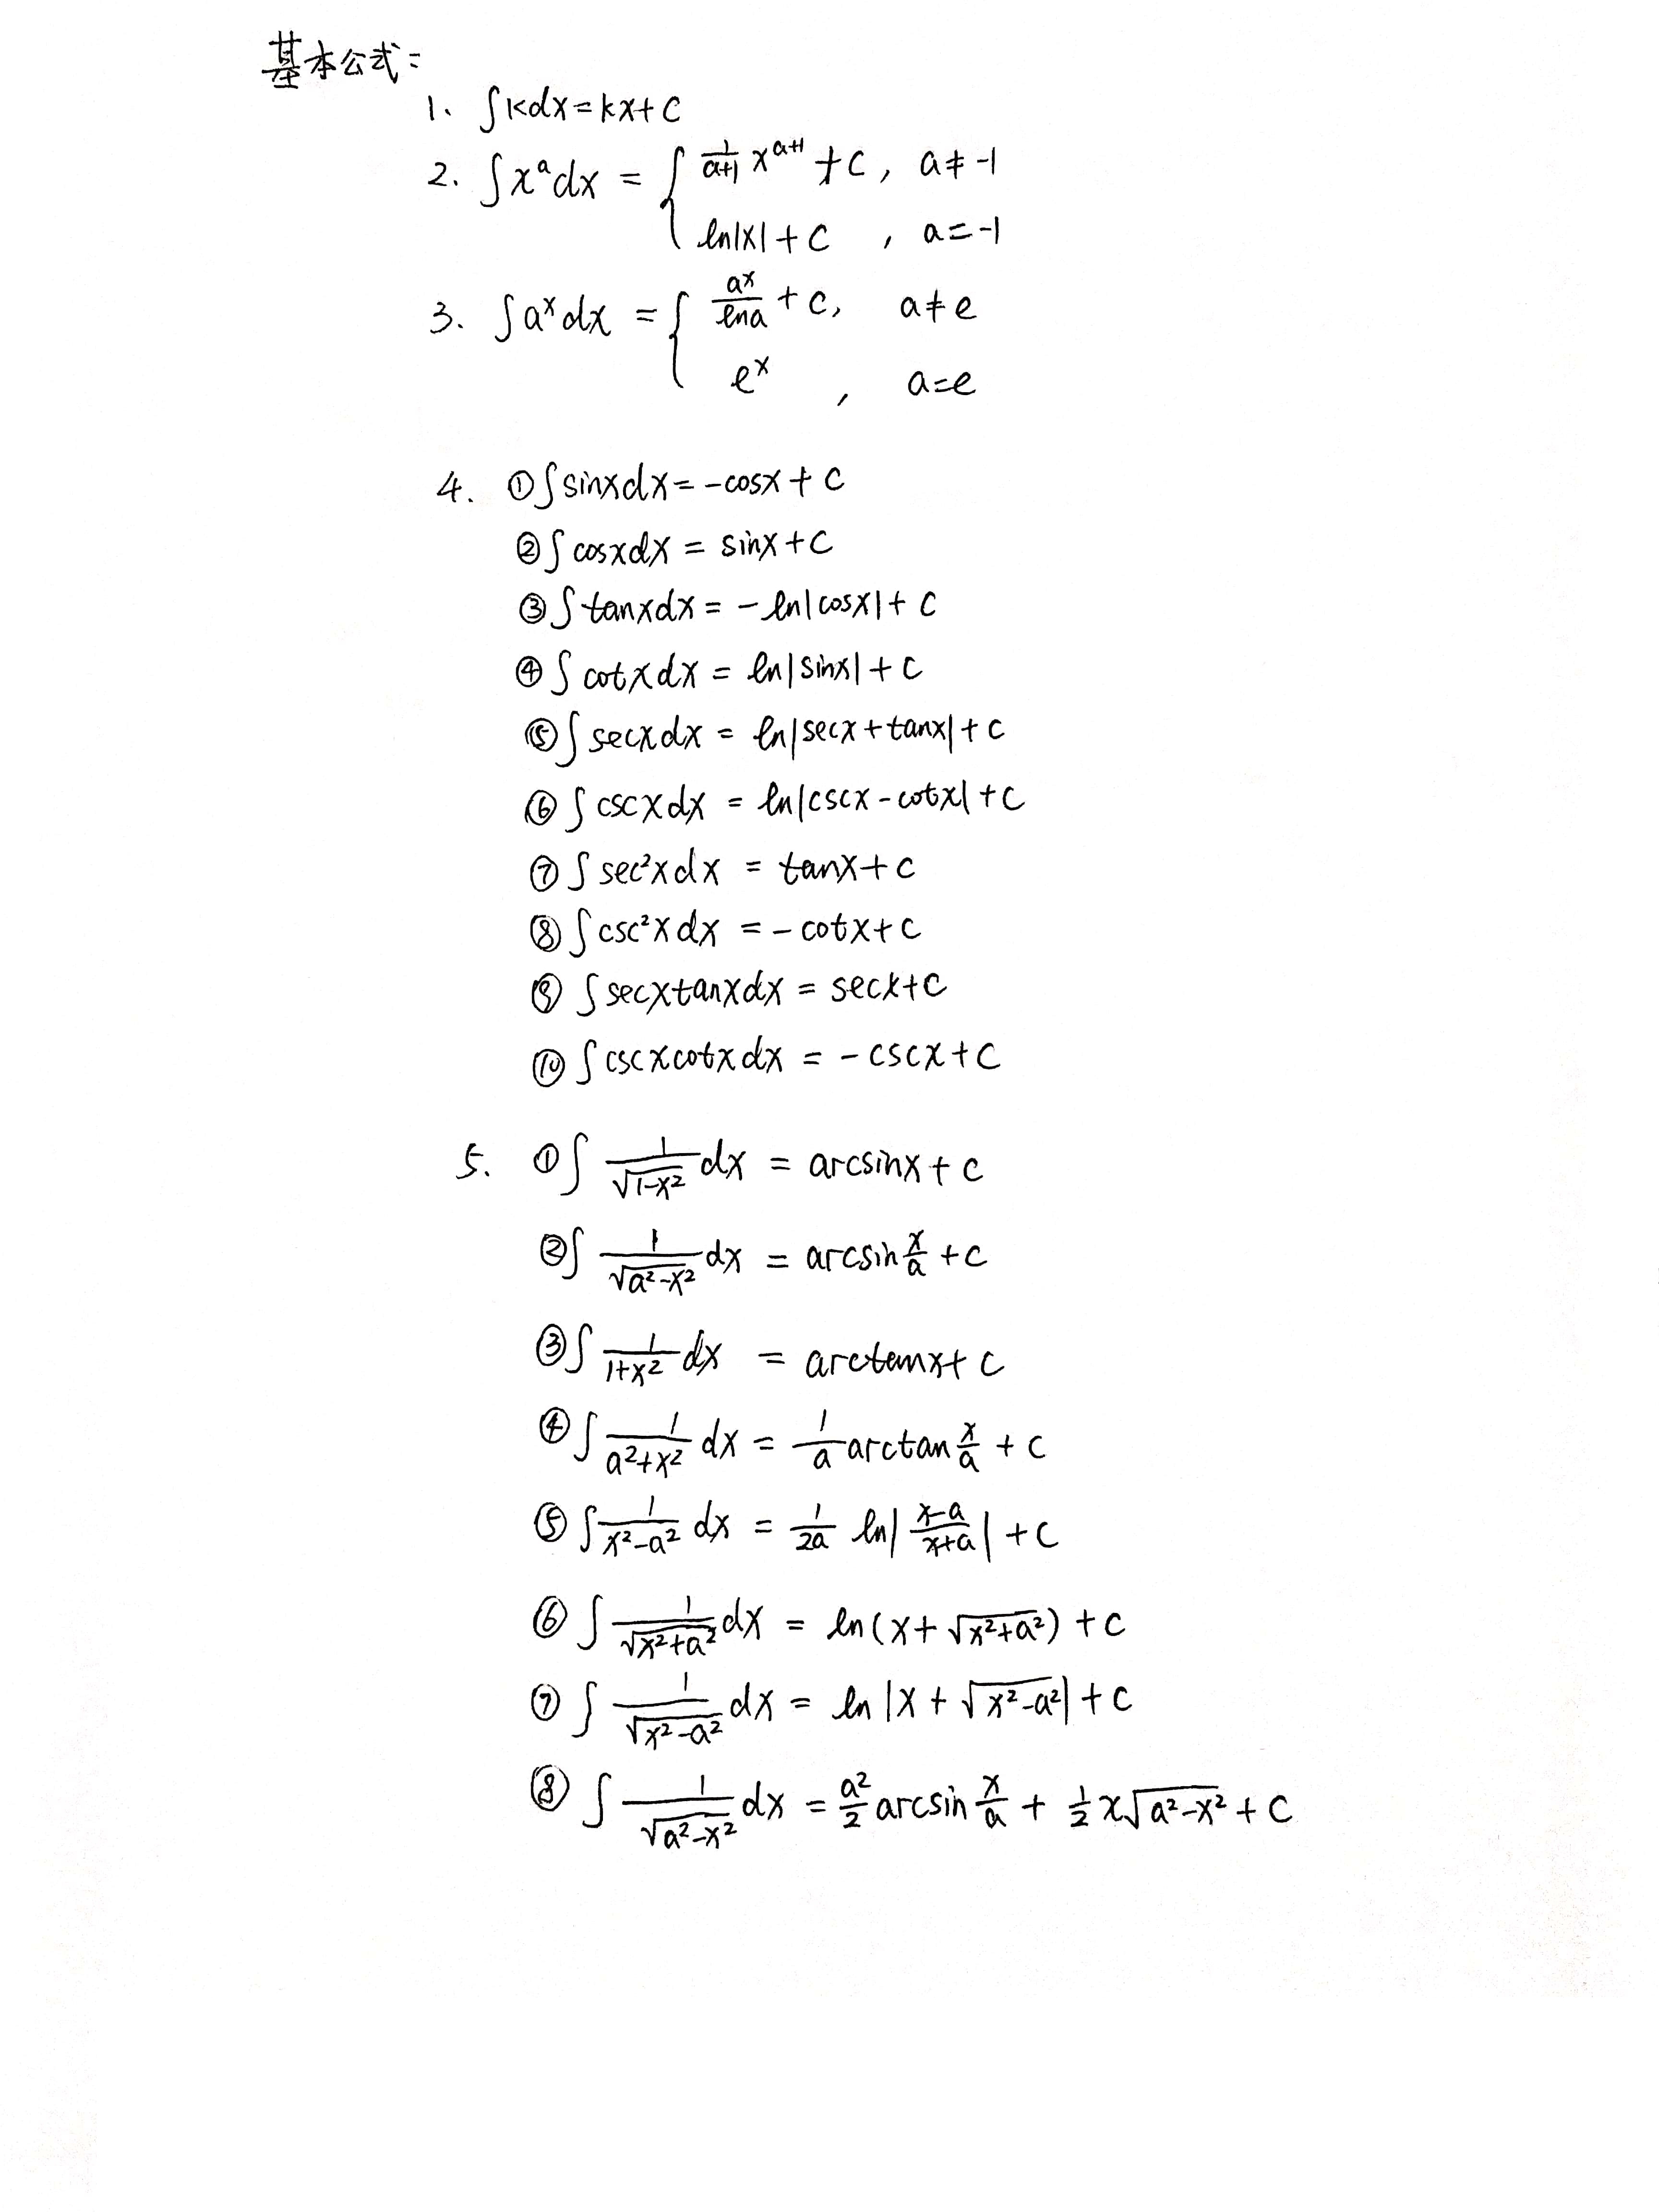 基本公式:
1. ∫kdx=kx+C
2. ∫x^a dx = { 1/(a+1) x^(a+1) + C, a≠-1
ln|x|+C , a=-1
3. ∫a^x dx = { a^x/lna + C, a≠e
e^x , a=e
4. ①∫sinxdx=-cosx+C
②∫cosxdx = sinx+C
③∫tanxdx = -ln|cosx|+C
④∫cotxdx = ln|sinx|+C
⑤∫secxdx = ln|secx+tanx|+C
⑥∫cscxdx = ln|cscx-cotx|+C
⑦∫sec²xdx = tanx+C
⑧∫csc²xdx = -cotx+C
⑨∫secxtanxdx = secx+C
⑩∫cscxcotxdx = -cscx+C
5. ①∫ 1/√(1-x²) dx = arcsinx+C
②∫ 1/√(a²-x²) dx = arcsin x/a +C
③∫ 1/(1+x²) dx = arctanx+C
④∫ 1/(a²+x²) dx = 1/a arctan x/a + C
⑤∫ 1/(x²-a²) dx = 1/2a ln|(x-a)/(x+a)| +C
⑥∫ 1/√(x²+a²) dx = ln(x+√(x²+a²))+C
⑦∫ 1/√(x²-a²) dx = ln|x+√(x²-a²)|+C
⑧∫ 1/√(a²-x²) dx = a²/2 arcsin x/a + 1/2 x√(a²-x²) + C